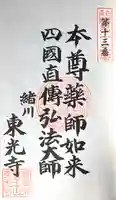 第十三番
本尊藥師如来
四國直傳弘法大師
緒川
東光寺